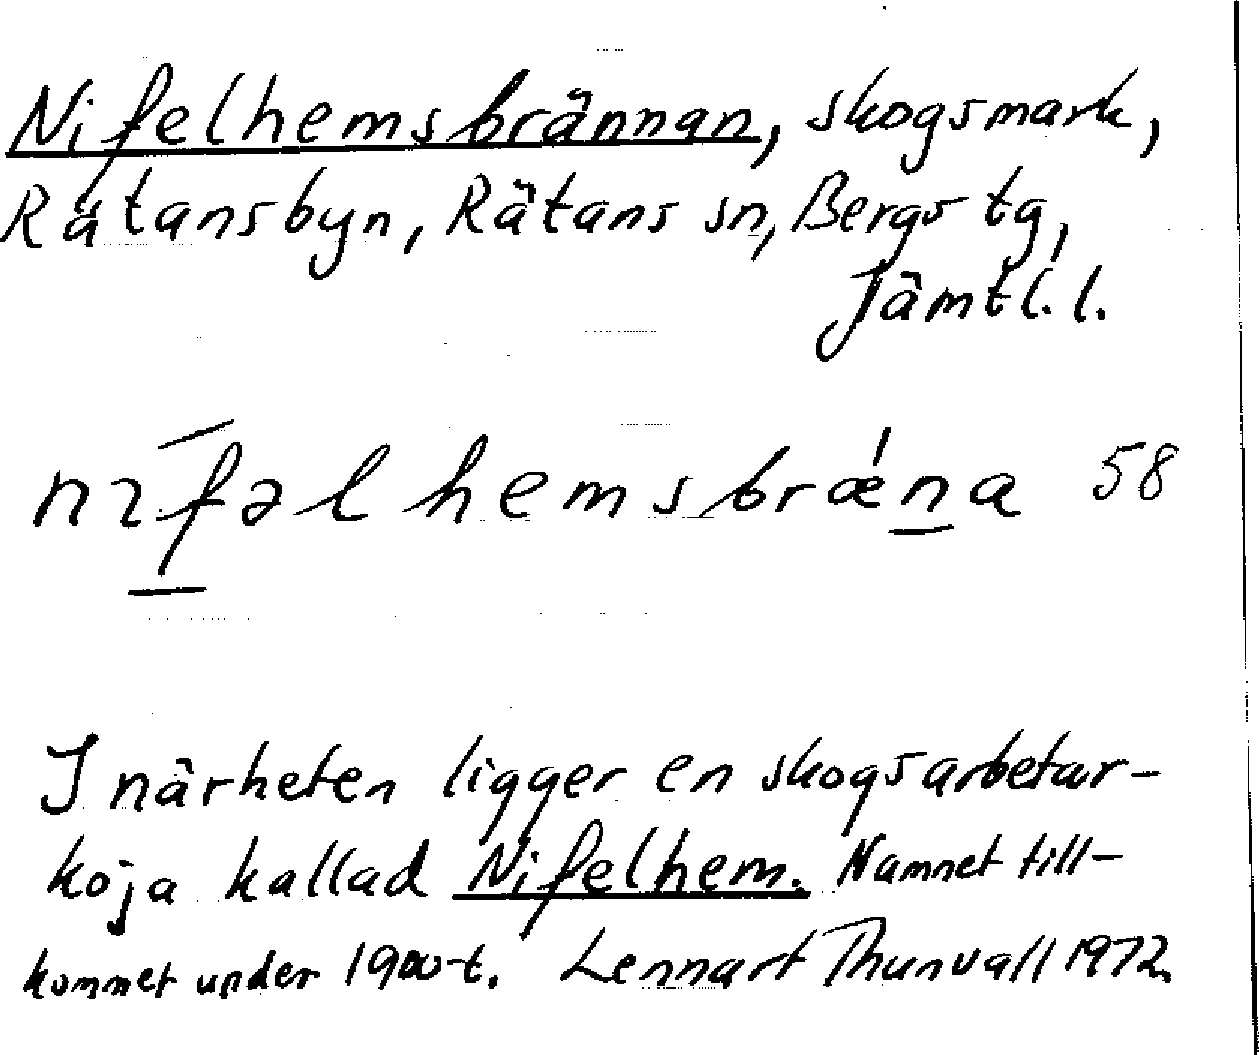 Nifelhemsbrännan, skogsmark,
Rätansbyn, Rätans sn, Bergs tg,
Jämtl. l.
nɪf̲əlhemsbrǽn̲a 58
I närheten ligger en skogsarbetar-
koja kallad Nifelhem. Namnet till-
kommet under 1900-t. Lennart Thunvall 1972.